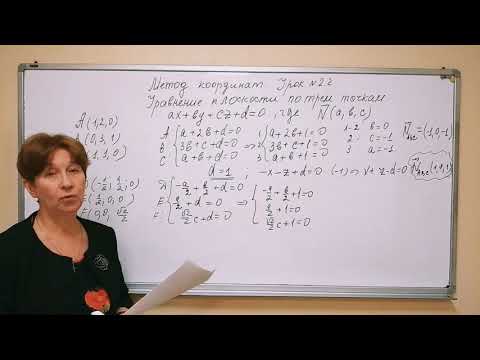 Метод координат Урок №22
Уравнение плоскости по трем точкам
ax + by + cz + d = 0, где N⃗(a, b, c)
A(1, 2, 0)
(0, 3, 1)
1, 1, 0)
A { a + 2b + d = 0
B { 3b + c + d = 0
C { a + b + d = 0
⇒
1 { a + 2b + 1 = 0
2 { 3b + c + 1 = 0
3 { a + b + 1 = 0
1-2 b = 0
2 c = -1
3 a = -1
N⃗ (-1, 0, -1)
d = 1
-x - z + 1 = 0 (-1) ⇒
(-1/2, 1/2, 0)
E(1/2, 0, 0)
F(0, 0, √2/2)
{ -a/2 + b/2 + d = 0
E { a/2 + d = 0
F { √2/2 c + d = 0
⇒
{ -a/2 + b/2 + 1 = 0
a/2 + 1 = 0
√2/2 c + 1 = 0